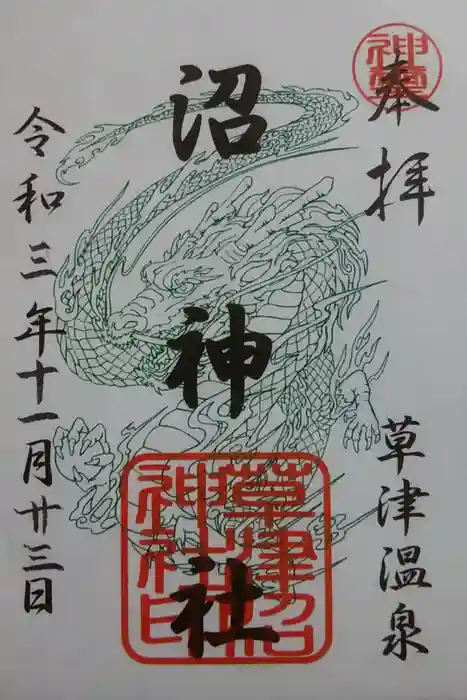 奉拝
草津温泉
沼神社
令和三年十一月廿三日
草津沼
神社印